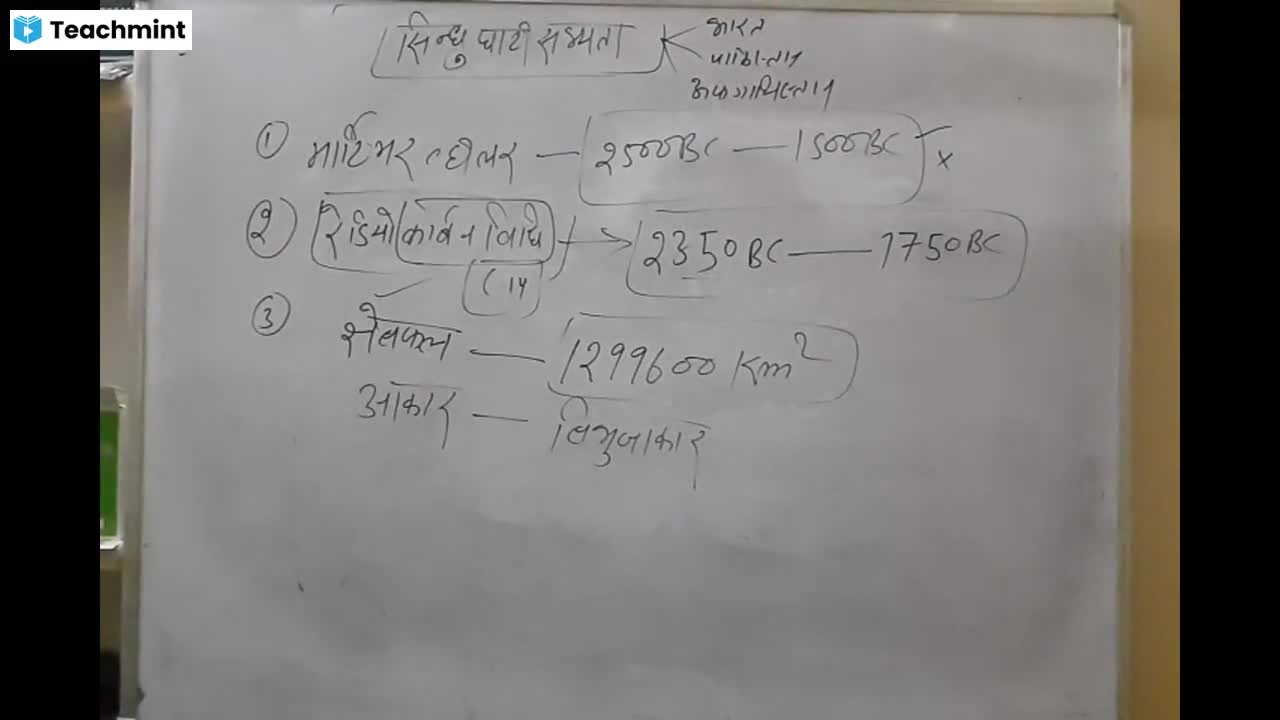 Teachmint
सिन्धु घाटी सभ्यता
भारत
पाकिस्तान
अफगानिस्तान
① मार्टिमर व्हीलर — 2500BC — 1500BC x
② रेडियो कार्बन विधि → 2350BC — 1750BC
C14
③ क्षेत्रफल — 1299600 Km²
आकार — त्रिभुजाकार